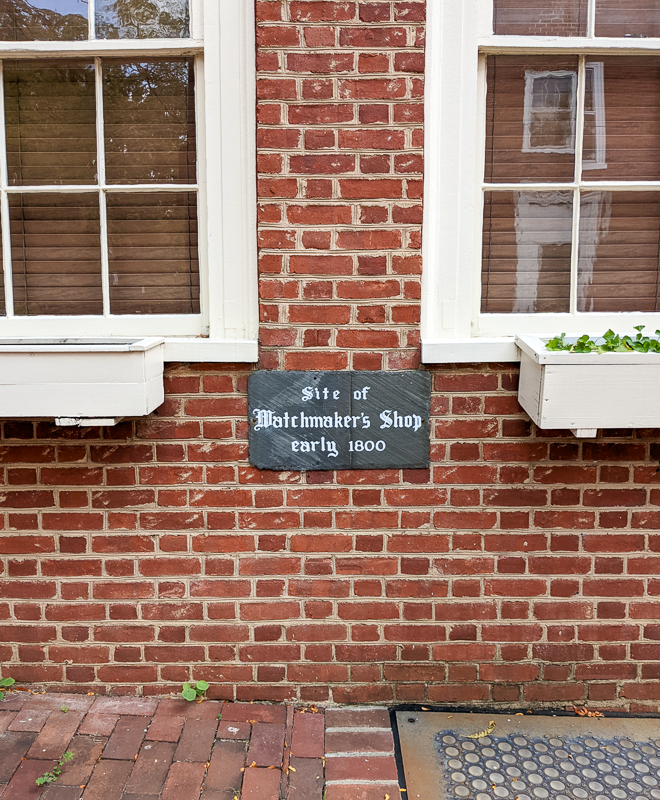 Site of
Watchmaker's Shop
early 1800